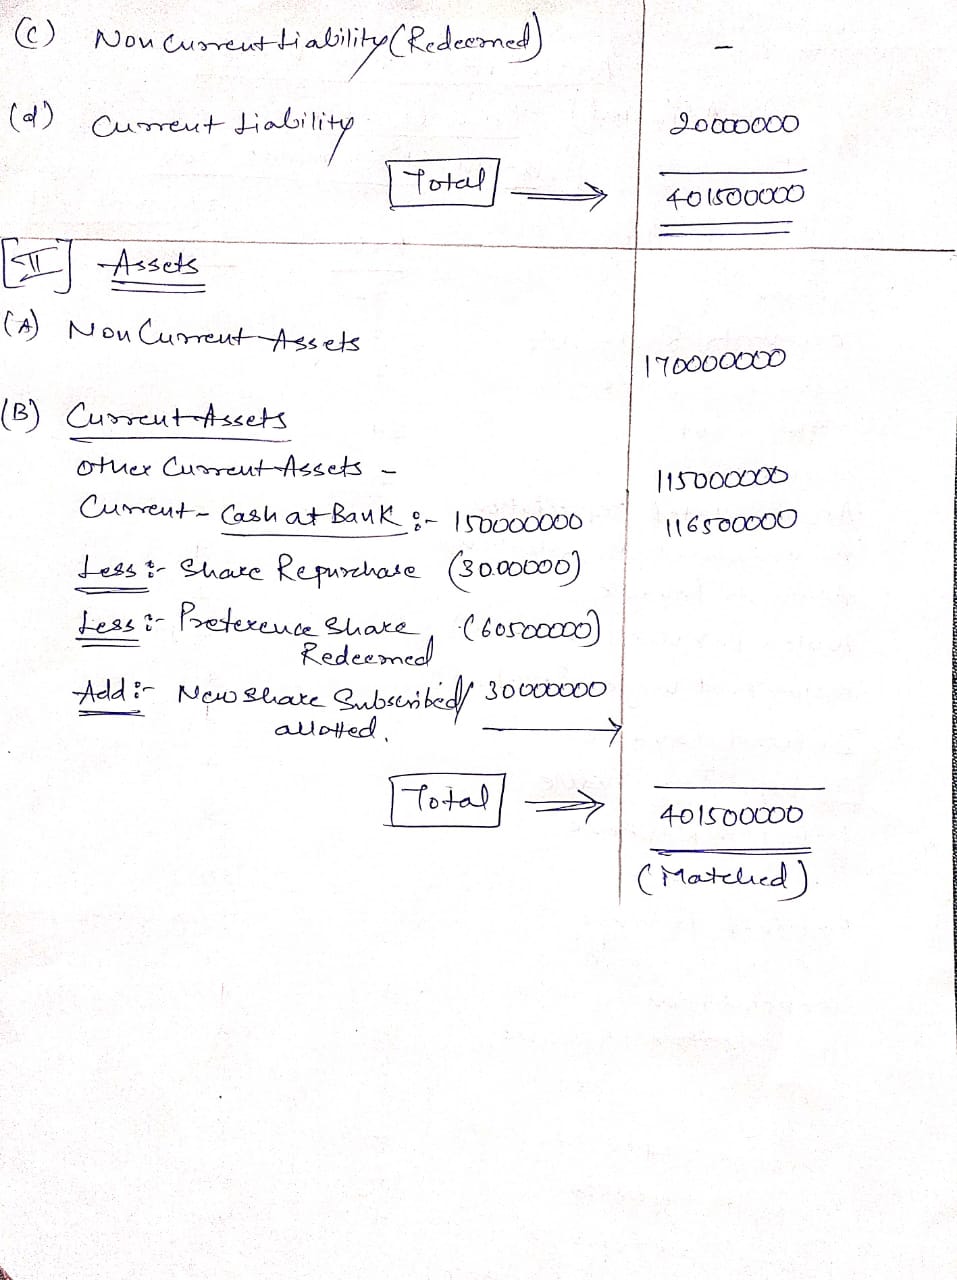 (c) Non Current Liability (Redeemed) -
(d) Current Liability 20000000
Total → 401500000
[II] Assets
(A) Non Current Assets
170000000
(B) Current Assets
Other Current Assets - 115000000
Current - Cash at Bank :- 150000000 116500000
Less :- Share Repurchase (3000000)
Less :- Preference Share (60500000)
Redeemed
Add :- New Share Subscribed/ 30000000
allotted. →
Total → 401500000
(Matched)